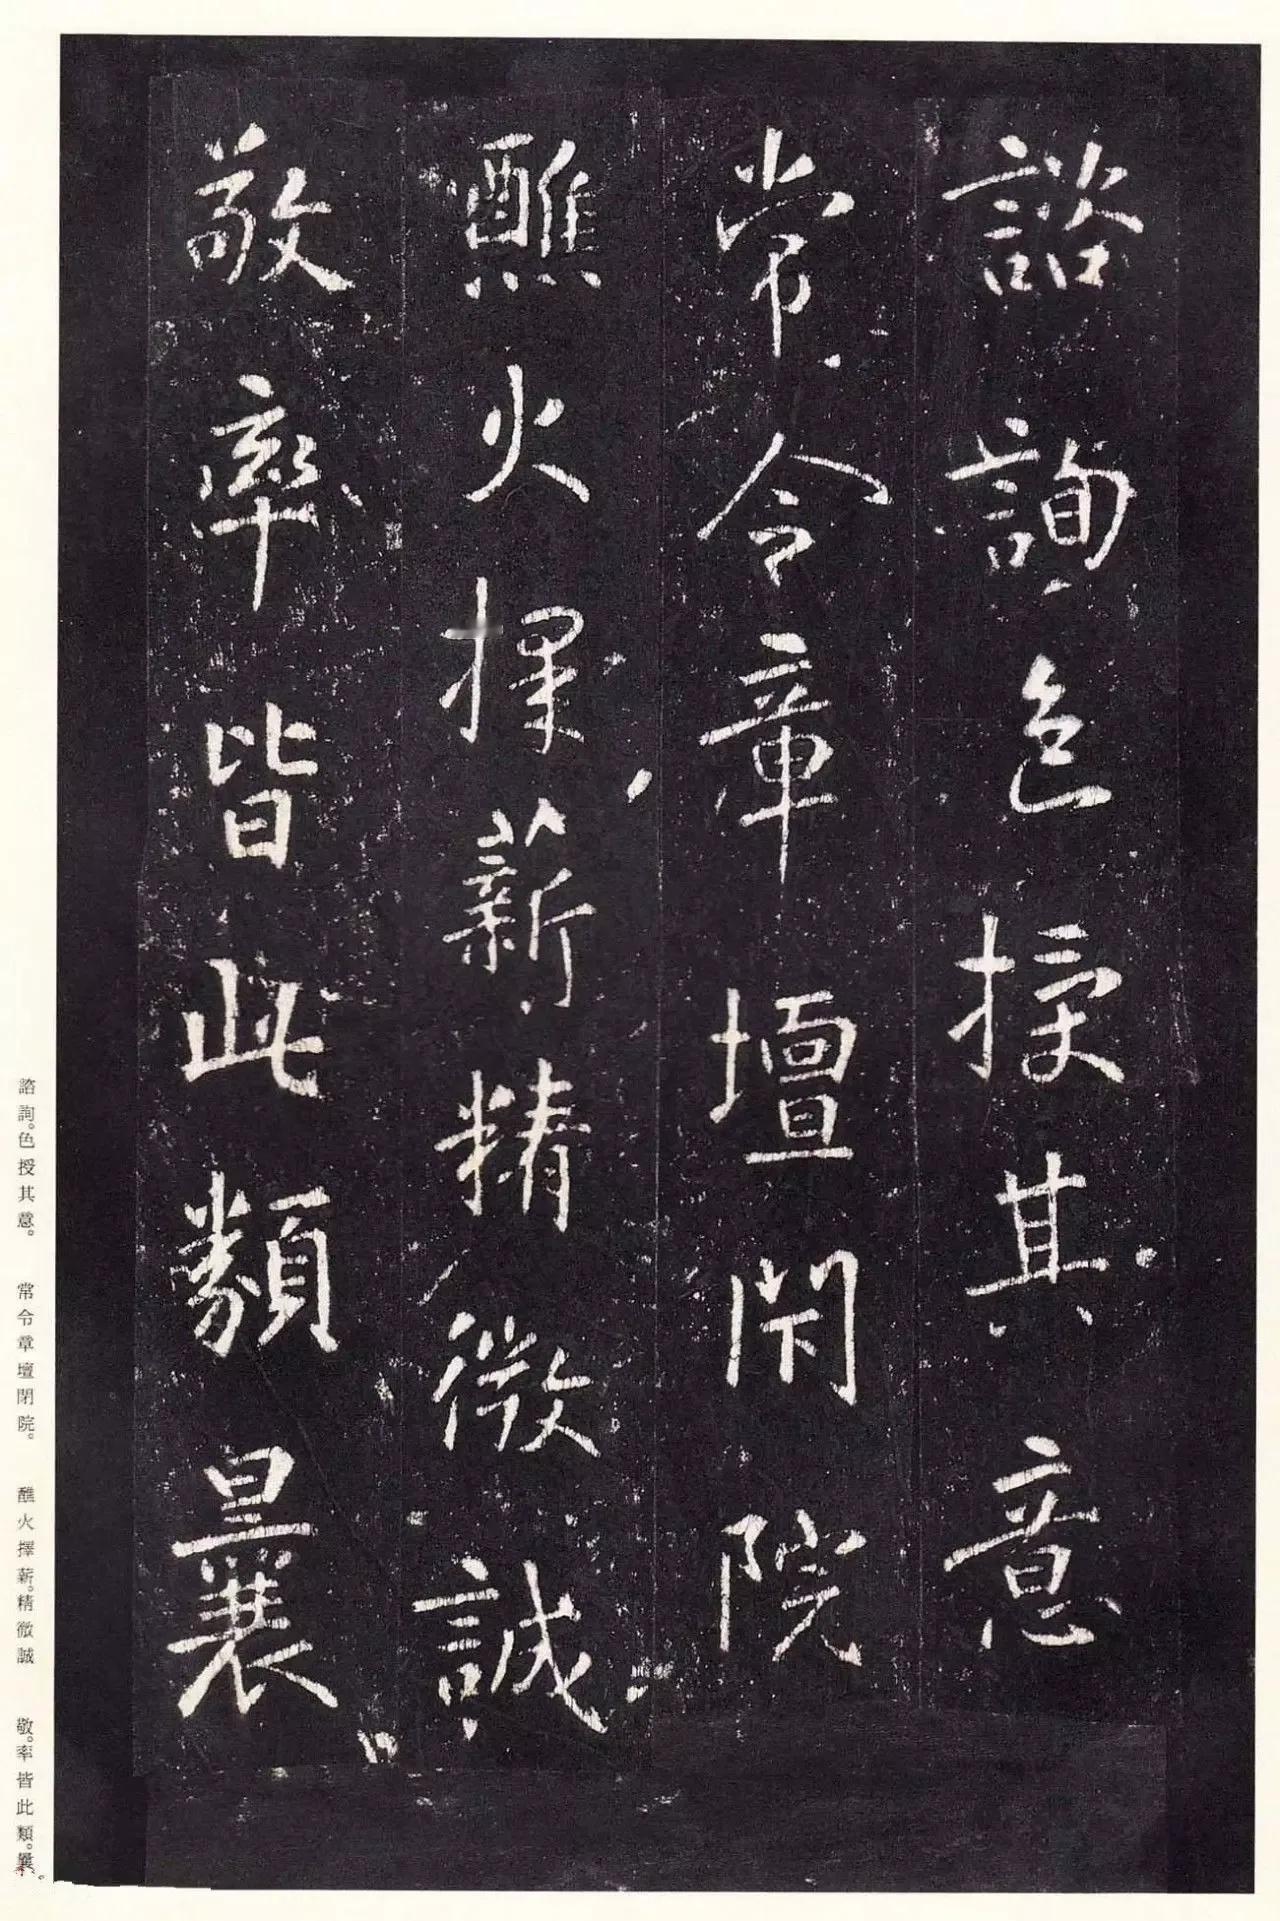 諮詢色授其意
常令章壇閉院
醮火擇薪精微誠
敬率皆此類曩
諮詢。色授其意。 常令章壇閉院。 醮火擇薪。精微誠 敬。率皆此類。曩